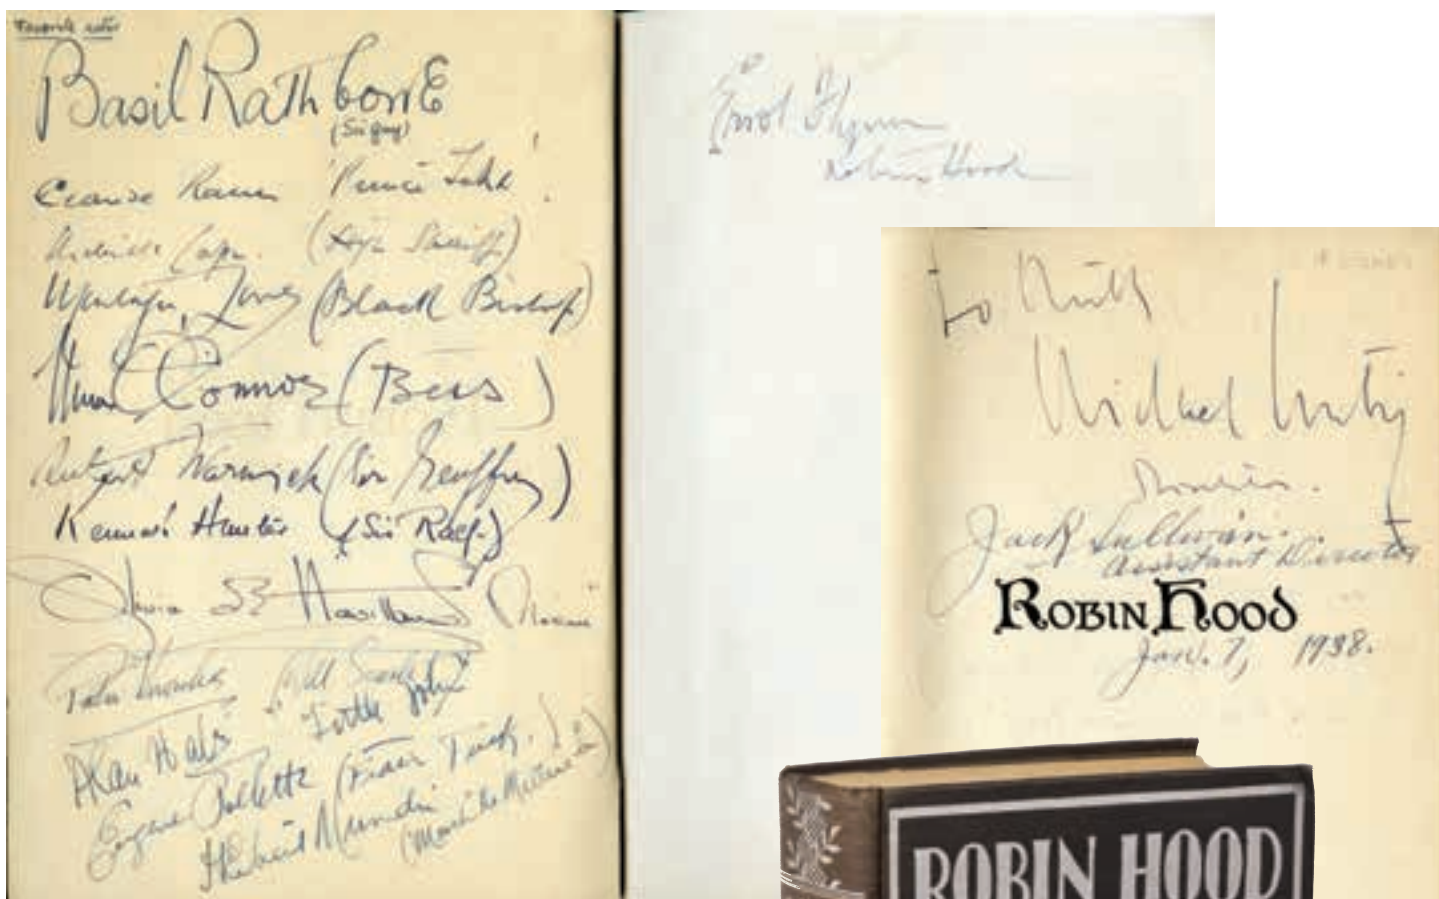 Favorite actor
Basil Rathbone
(Sir Guy)
Claude Rains 'Prince John'.
(High Sheriff)
Montagu Love (Black Bishop)
Una O'Connor (Bess)
Robert Warwick (Sir Geoffrey)
Kenneth Hunter (Sir Ralf.)
Olivia De Havilland Marian
Patric Knowles Will Scarlet
Alan Hale Little John
Eugene Pallette (Friar Tuck.)
Herbert Mundin
(Much the Miller's son)
Errol Flynn
Robin Hood
To Ruth
Michael Curtiz
Director.
Jack Sullivan.
Assistant Director
ROBIN HOOD
Jan. 7, 1938.
ROBIN HOOD